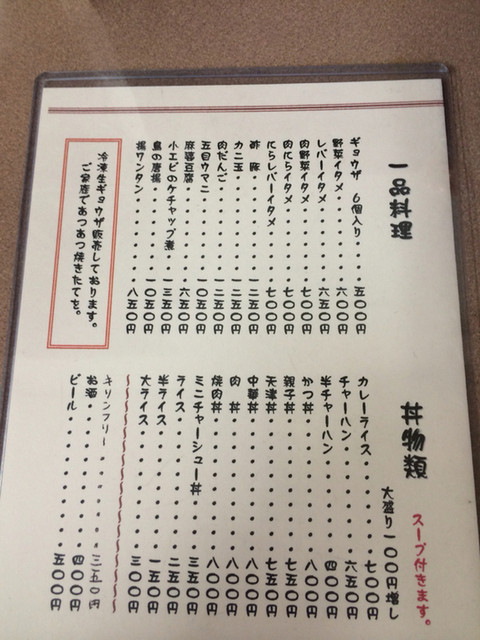 一品料理
ギョウザ 6個入り・・・五〇〇円
野菜イタメ・・・・・・六〇〇円
レバーイタメ・・・・・六五〇円
肉野菜イタメ・・・・・七〇〇円
肉にらイタメ・・・・・七〇〇円
にらレバーイタメ・・・七〇〇円
酢豚・・・・・・・・一二五〇円
カニ玉・・・・・・・一二五〇円
肉だんご・・・・・・一二五〇円
五目ウマニ・・・・・一〇五〇円
麻婆豆腐・・・・・・・六五〇円
小エビのケチャップ煮・一三五〇円
鳥の唐揚・・・・・・一〇五〇円
揚ワンタン・・・・・・八五〇円
冷凍生ギョウザ販売しております。
ご家庭であつあつ焼きたてを。
丼物類
スープ付きます。
大盛り一〇〇円増し
カレーライス・・・・・七〇〇円
チャーハン・・・・・・六五〇円
半チャーハン・・・・・四〇〇円
かつ丼・・・・・・・・八〇〇円
親子丼・・・・・・・・七五〇円
天津丼・・・・・・・・七五〇円
中華丼・・・・・・・・八〇〇円
肉丼・・・・・・・・・八〇〇円
焼肉丼・・・・・・・・八〇〇円
ミニチャーシュー丼・・三五〇円
ライス・・・・・・・・二五〇円
半ライス・・・・・・・一五〇円
大ライス・・・・・・・三〇〇円
キリンフリー・・・・・三五〇円
お酒・・・・・・・・・四〇〇円
ビール・・・・・・・・五〇〇円